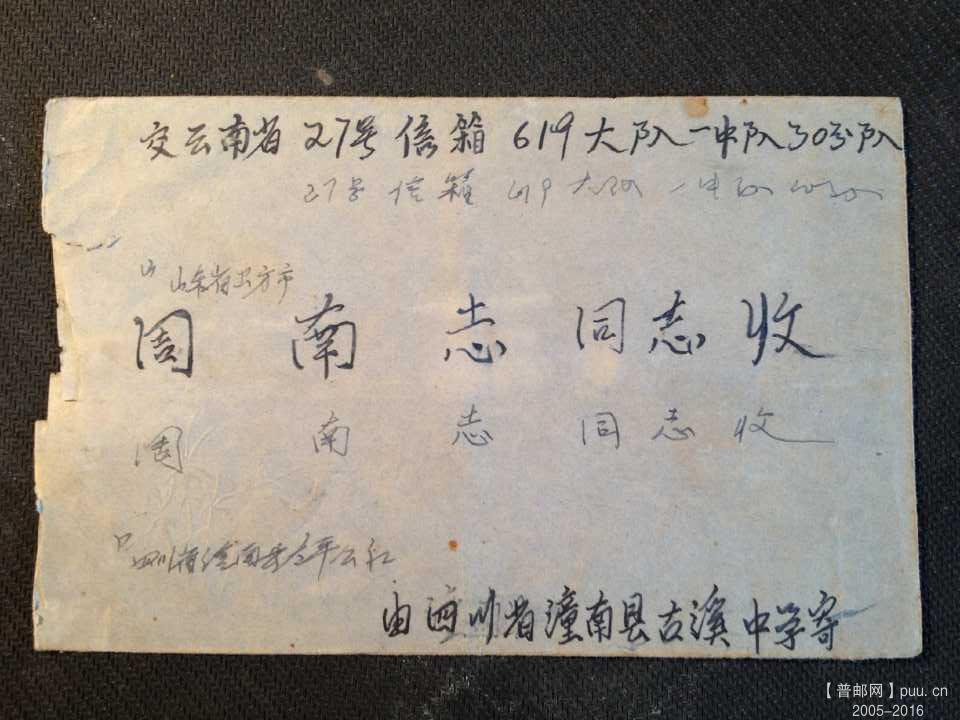 交云南省27号信箱619大队一中队30分队
27号信箱619大队一中队
山东省
周南志同志收
周南志同志收
四川省潼南县
公社
由四川省潼南县古溪中学寄
【普邮网】puu.cn
2005-2016